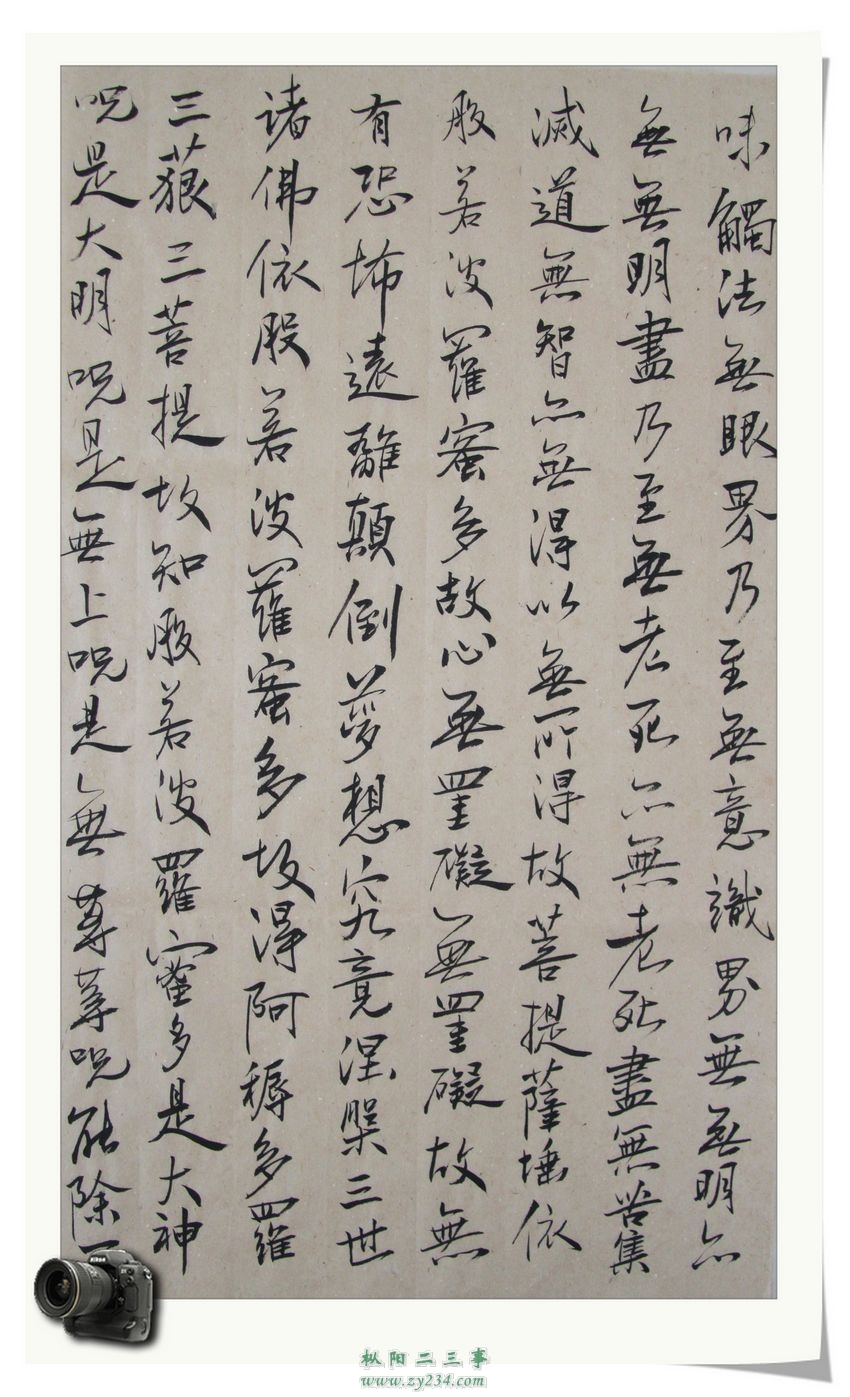 味觸法無眼界乃至無意識界無無明亦
無無明盡乃至無老死亦無老死盡無苦集
滅道無智亦無得以無所得故菩提薩埵依
般若波羅蜜多故心無罣礙無罣礙故無
有恐怖遠離顛倒夢想究竟涅槃三世
諸佛依般若波羅蜜多故得阿耨多羅
三藐三菩提故知般若波羅蜜多是大神
呪是大明呪是無上呪是無等等呪能除一
Nikon
枞阳二三事
www.zy234.com